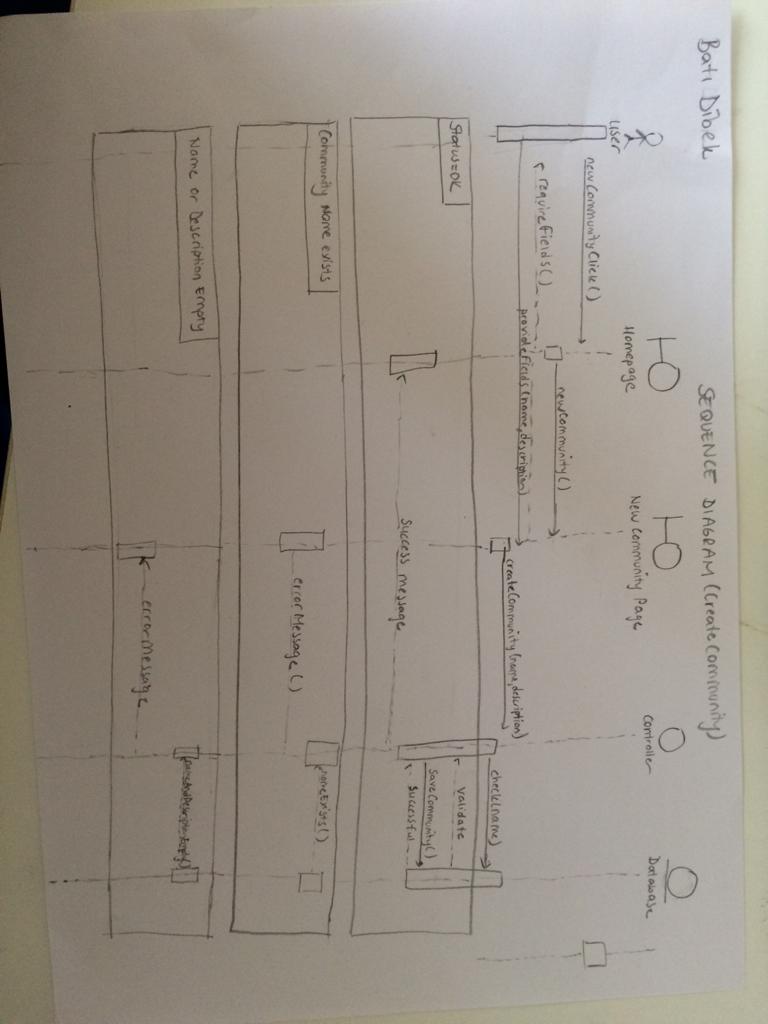 Bati Dibek
SEQUENCE DIAGRAM (Create Community)
User
Homepage
New Community Page
Controller
Database
newCommunityClick()
newCommunity()
requireFields()
provideFields(name,description)
createCommunity(name,description)
check(name)
validate
saveCommunity()
Successful
Status=OK
Success message
Community Name exists
nameExists()
errorMessage()
Name or Description Empty
errorMessage